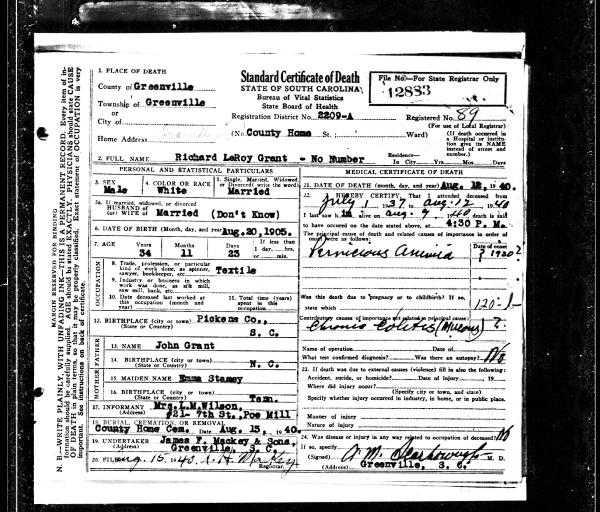 MARGIN RESERVED FOR BINDING
N. B.—WRITE PLAINLY, WITH UNFADING INK—THIS IS A PERMANENT RECORD. Every item of in-
formation should be carefully supplied. AGE should be stated EXACTLY. PHYSICIANS should state CAUSE
OF DEATH in plain terms, so that it may be properly classified. Exact statement of OCCUPATION is very
important. See instructions on back of certificate.
1. PLACE OF DEATH
County of Greenville
Township of Greenville
or
City of
Home Address
Standard Certificate of Death
STATE OF SOUTH CAROLINA
Bureau of Vital Statistics
State Board of Health
Registration District No. 2209-A
(No. County Home St. Ward)
File No.—For State Registrar Only
12883
Registered No. 89
(For use of Local Registrar)
(If death occurred in
a Hospital or institu-
tion give its NAME
instead of street and
number.)
2. FULL NAME Richard LeRoy Grant - No Number
Residence—
In City Yrs. Mos. Days
PERSONAL AND STATISTICAL PARTICULARS
3. SEX
Male
4. COLOR OR RACE
White
5. Single, Married, Widowed,
or Divorced (write the word)
Married
5a. If married, widowed, or divorced
HUSBAND of
(or) WIFE of Married (Don't Know)
6. DATE OF BIRTH (Month, day, and year) Aug. 20, 1905.
7. AGE Years Months Days
34 11 23
If less than
1 day, hrs.
or min.
OCCUPATION
8. Trade, profession, or particular
kind of work done, as spinner,
sawyer, bookkeeper, etc. Textile
9. Industry or business in which
work was done, as silk mill,
saw mill, bank, etc.
10. Date deceased last worked at
this occupation (month and
year)
11. Total time (years)
spent in this
occupation
12. BIRTHPLACE (city or town) Pickens Co.,
(State or Country) S. C.
FATHER
13. NAME John Grant
14. BIRTHPLACE (city or town)
(State or Country) N. C.
MOTHER
15. MAIDEN NAME Emma Stamey
16. BIRTHPLACE (city or town)
(State or Country) Tenn.
17. INFORMANT Mrs. L.M. Wilson,
(Address) #21- 7th St., Poe Mill
18. BURIAL, CREMATION, OR REMOVAL
County Home Cem. Date Aug. 13, 1940.
19. UNDERTAKER James F. Mackey & Sons,
(Address) Greenville, S. C.
20. FILED Aug. 15 1940. Registrar.
MEDICAL CERTIFICATE OF DEATH
21. DATE OF DEATH (month, day, and year) Aug. 12, 1940.
22. I HEREBY CERTIFY, That I attended deceased from
July 1, 1937 to Aug. 12, 1940
I last saw him alive on Aug. 9, 1940 death is said
to have occurred on the date stated above, at 4:30 P. M.
The principal cause of death and related causes of importance in order of
onset were as follows:
Date of onset
Pernicious Anemia ? 1930?
Was this death due to pregnancy or to childbirth? If so,
state which
Contributory causes of importance not related to principal cause:
Chronic Colitis (Mucous) ?
Name of operation Date of
What test confirmed diagnosis? Was there an autopsy? No
23. If death was due to external causes (violence) fill in also the following:
Accident, suicide, or homicide? Date of injury 19
Where did injury occur?
(Specify city or town, and state)
Specify whether injury occurred in industry, in home, or in public place.
Manner of injury
Nature of injury
24. Was disease or injury in any way related to occupation of deceased? No
If so, specify
(Signed) M. D.
(Address) Greenville, S. C.